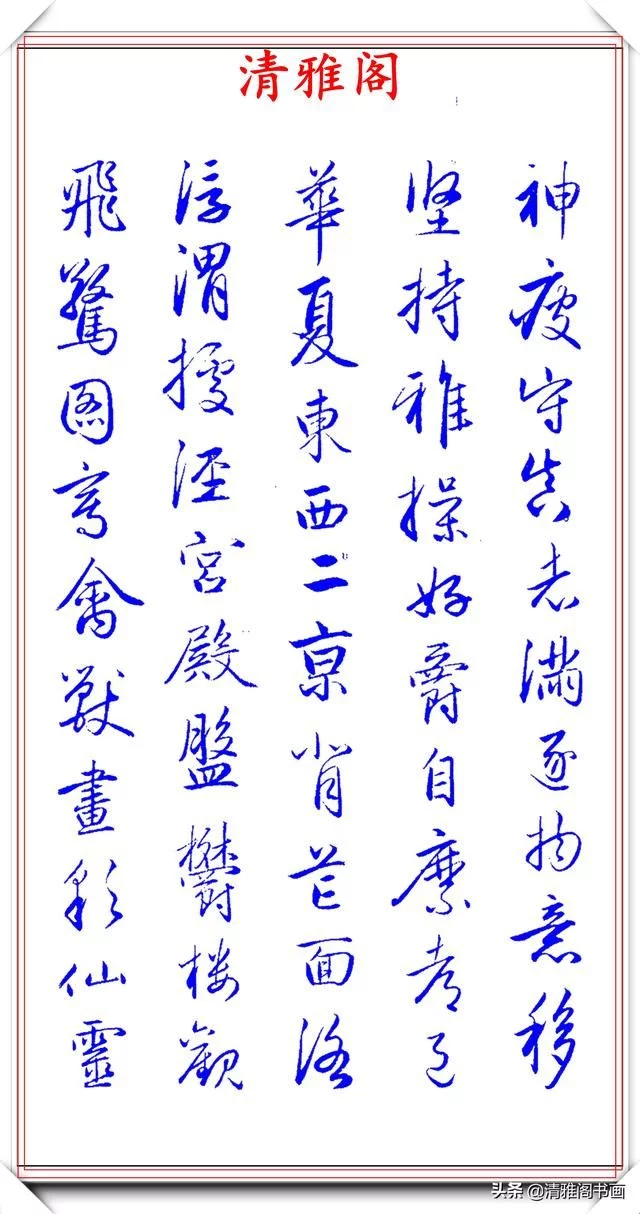 清雅阁
神疲守真志滿逐物意移
坚持雅操好爵自縻都邑
華夏東西二京背芒面洛
浮渭據涇宮殿盤鬱楼觀
飛驚圖寫禽獸畫彩仙靈
头条 @清雅阁书画